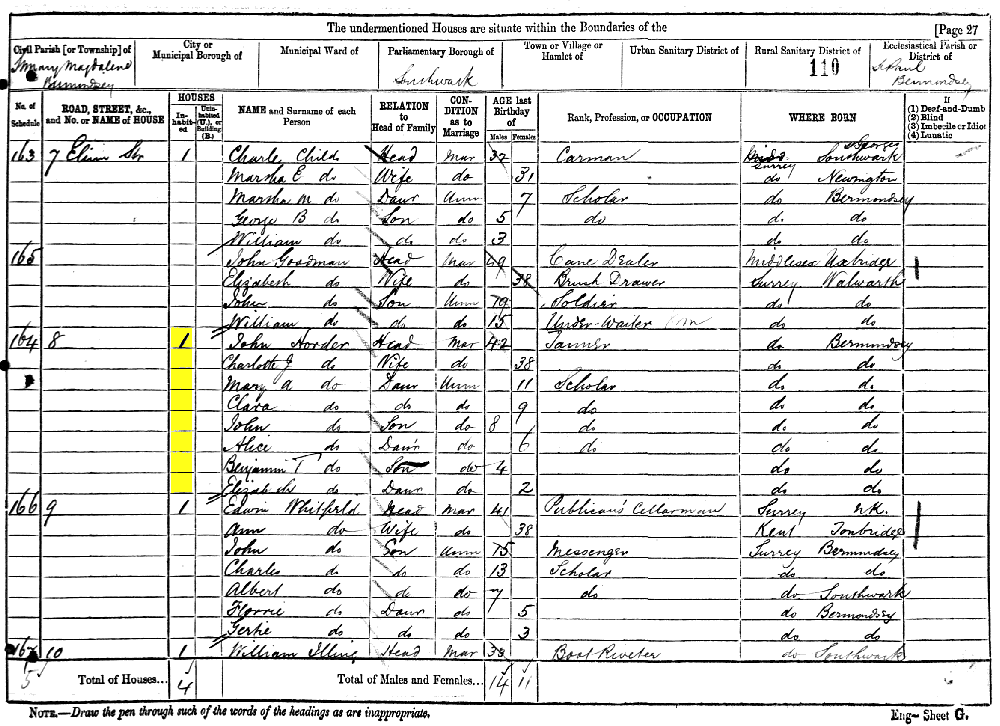 The undermentioned Houses are situate within the Boundaries of the [Page 27
Civil Parish [or Township] of City or Municipal Borough of Municipal Ward of Parliamentary Borough of Town or Village or Hamlet of Urban Sanitary District of Rural Sanitary District of Ecclesiastical Parish or District of
St Mary Magdalene Bermondsey Southwark 110 St Paul Bermondsey
No. of Schedule ROAD, STREET, &c., and No. or NAME of HOUSE HOUSES Inhabited Uninhabited (U.), or Building (B.) NAME and Surname of each Person RELATION to Head of Family CONDITION as to Marriage AGE last Birthday of Males Females Rank, Profession, or OCCUPATION WHERE BORN If (1) Deaf-and-Dumb (2) Blind (3) Imbecile or Idiot (4) Lunatic
163 7 Elim Str 1 Charles Childs Head Mar 32 Carman Surrey Southwark
Marsha E do Wife do 31 do Newington
Marsha M do Daur Unm 7 Scholar do Bermondsey
George B do Son do 5 do do do
William do do do 3 do do
165 John Goodman Head Mar 49 Cane Dealer Middlesex Uxbridge
Elizabeth do Wife do 38 Brush Drawer Surrey Walworth
John do Son Unm 19 Soldier do do
William do do do 15 Under-Waiter do do
164 8 1 John Horder Head Mar 42 Tanner do Bermondsey
Charlotte J do Wife do 38 do do
Mary A do Daur Unm 11 Scholar do do
Clara do do do 9 do do do
John do Son do 8 do do do
Alice do Daur do 6 do do do
Benjamin T do Son do 4 do do
Elizabeth do Daur do 2 do do
166 9 1 Edwin Whitfield Head Mar 41 Publican's Cellarman Surrey N.K.
Ann do Wife do 38 Kent Tonbridge
John do Son Unm 15 Messenger Surrey Bermondsey
Charles do do do 13 Scholar do do
Albert do do do 7 do do Southwark
Florrie do Daur do 5 do Bermondsey
Gertie do do do 3 do do
167 10 1 William Illing Head Mar 33 Boot Riveter do Southwark
5 Total of Houses... 4 Total of Males and Females... 14 11
NOTE.—Draw the pen through such of the words of the headings as are inappropriate. Eng— Sheet G.